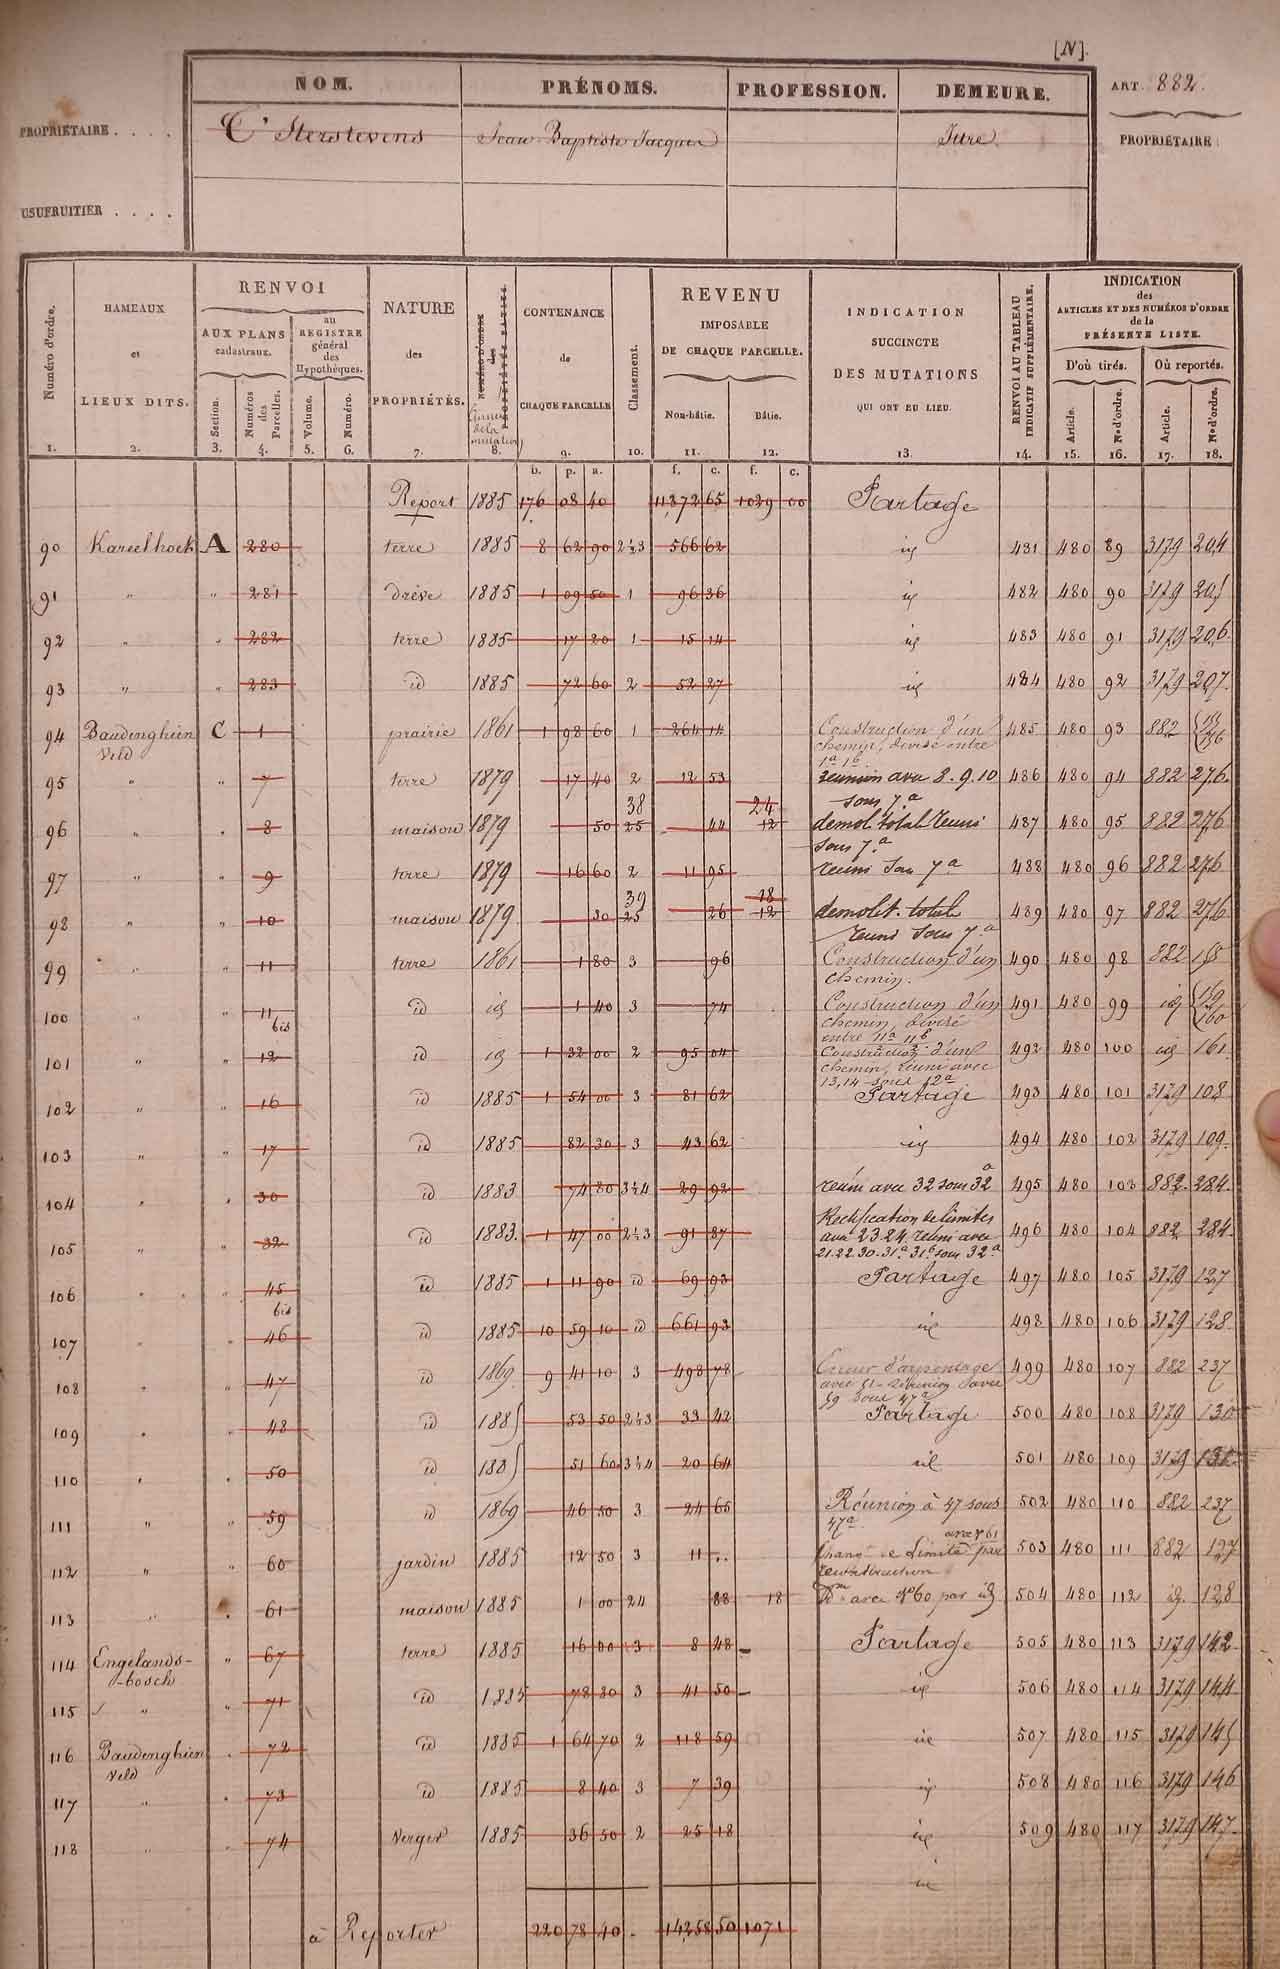 [N].
NOM. PRÉNOMS. PROFESSION. DEMEURE. ART. 882.
PROPRIÉTAIRE . . . . T'Sterstevens Jean Baptiste Jacques Jure PROPRIÉTAIRE
USUFRUITIER . . . .
Numéro d'ordre. 1.
HAMEAUX et LIEUX DITS. 2.
RENVOI
AUX PLANS cadastraux.
Section. 3.
Numéros des Parcelles. 4.
au REGISTRE général des Hypothèques.
Volume. 5.
Numéro. 6.
NATURE des PROPRIÉTÉS. 7.
NUMÉRO D'ORDRE des PROPRIÉTÉS BATIES.
Année de la mutation 8.
CONTENANCE de CHAQUE PARCELLE 9.
Classement. 10.
REVENU IMPOSABLE DE CHAQUE PARCELLE.
Non-bâtie. 11.
Bâtie. 12.
INDICATION SUCCINCTE DES MUTATIONS QUI ONT EU LIEU. 13.
RENVOI AU TABLEAU INDICATIF SUPPLÉMENTAIRE. 14.
INDICATION des ARTICLES ET DES NUMÉROS D'ORDRE de la PRÉSENTE LISTE.
D'où tirés. Où reportés.
Article. 15. No d'ordre. 16. Article. 17. No d'ordre. 18.
b. p. a. f. c. f. c.
Report 1885 176 08 40 11872 65 1029 00 Partage
90 Kareelhoek A 280 terre 1885 8 62 90 2½3 566 62 id 481 480 89 3179 204
91 " " 281 drève 1885 1 09 50 1 96 36 id 482 480 90 3179 205
92 " " 282 terre 1885 17 20 1 15 14 id 483 480 91 3179 206.
93 " " 283 id 1885 72 60 2 52 27 id 484 480 92 3179 207.
94 Baudenghien C 1 prairie 1861 1 98 60 1 264 14 Construction d'un 485 480 93 882
Veld chemin, divisé entre
1a 1b.
95 " " 7 terre 1879 17 40 2 12 53 réunion avec 8. 9. 10 486 480 94 882 276.
sous 7.a
38 24
96 " " 8 maison 1879 50 25 44 12 demol. total réuni 487 480 95 882 276
sous 7.a
97 " " 9 terre 1879 16 60 2 11 95 réuni sous 7a 488 480 96 882 276
39 18
98 " " 10 maison 1879 80 25 26 12 demolit. total 489 480 97 882 276
réuni sous 7a
99 " " 11 terre 1861 1 80 3 96 Construction d'un 490 480 98 882 158
chemin.
100 " " 11 id id 1 40 3 74 Construction d'un 491 480 99 id 159
bis chemin, divisé 160
entre 11a 11b
101 " " 12 id id 1 32 00 2 95 04 Construction d'un 492 480 100 id 161
chemin, réuni avec
13, 14 sous 12a
102 " " 16 id 1885 1 54 00 3 81 62 Partage 493 480 101 3179 108
103 " " 17 id 1885 82 30 3 43 62 id 494 480 102 3179 109.
104 " " 30 id 1883 74 80 3½4 29 92 réuni avec 32 sous 32a 495 480 103 882. 284.
105 " " 32 id 1883. 1 47 00 2½3 91 87 Rectification de limites 496 480 104 882 284
avec 23 24, réuni avec
21. 22 30. 31a. 31b. sous 32a
106 " " 45 id 1885 1 11 90 id 69 93 Partage 497 480 105 3179 127
bis
107 " " 46 id 1885 10 59 10 id 661 93 id 498 480 106 3179 128
108 " " 47 id 1869 9 41 10 3 498 78 Erreur d'arpentage 499 480 107 882 237
avec 51 - Réunion avec
59 sous 47a
109 " " 48 id 1885 53 50 2½3 33 42 Partage 500 480 108 3179 130
110 " " 50 id 1885 51 60 3½4 20 64 id 501 480 109 3179
111 " " 59 id 1869 46 50 3 24 65 Réunion à 47 sous 502 480 110 882 237
47a
112 " " 60 jardin 1885 12 50 3 11 .. Changt de Limite avec 61 par 503 480 111 882 127
reconstruction
113 " " 61 maison 1885 1 00 24 88 18 Dm avec No 60 par id 504 480 112 id. 128
114 Engelands- " 67 terre 1885 16 00 3 8 48 Partage 505 480 113 3179 142
-bosch
115 " " 71 id 1885 78 30 3 41 50 id 506 480 114 3179 144
116 Baudenghien " 72 id 1885 1 64 70 2 118 59 id 507 480 115 3179 145
Veld
117 " " 73 id 1885 8 40 3 7 39 id 508 480 116 3179 146
118 " " 74 verger 1885 36 50 2 25 18 id 509 480 117 3179 147.
id
à Reporter 220 78 40 14258 50 1071